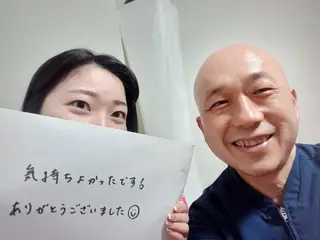 気持ちよかったです!
ありがとうございました☺